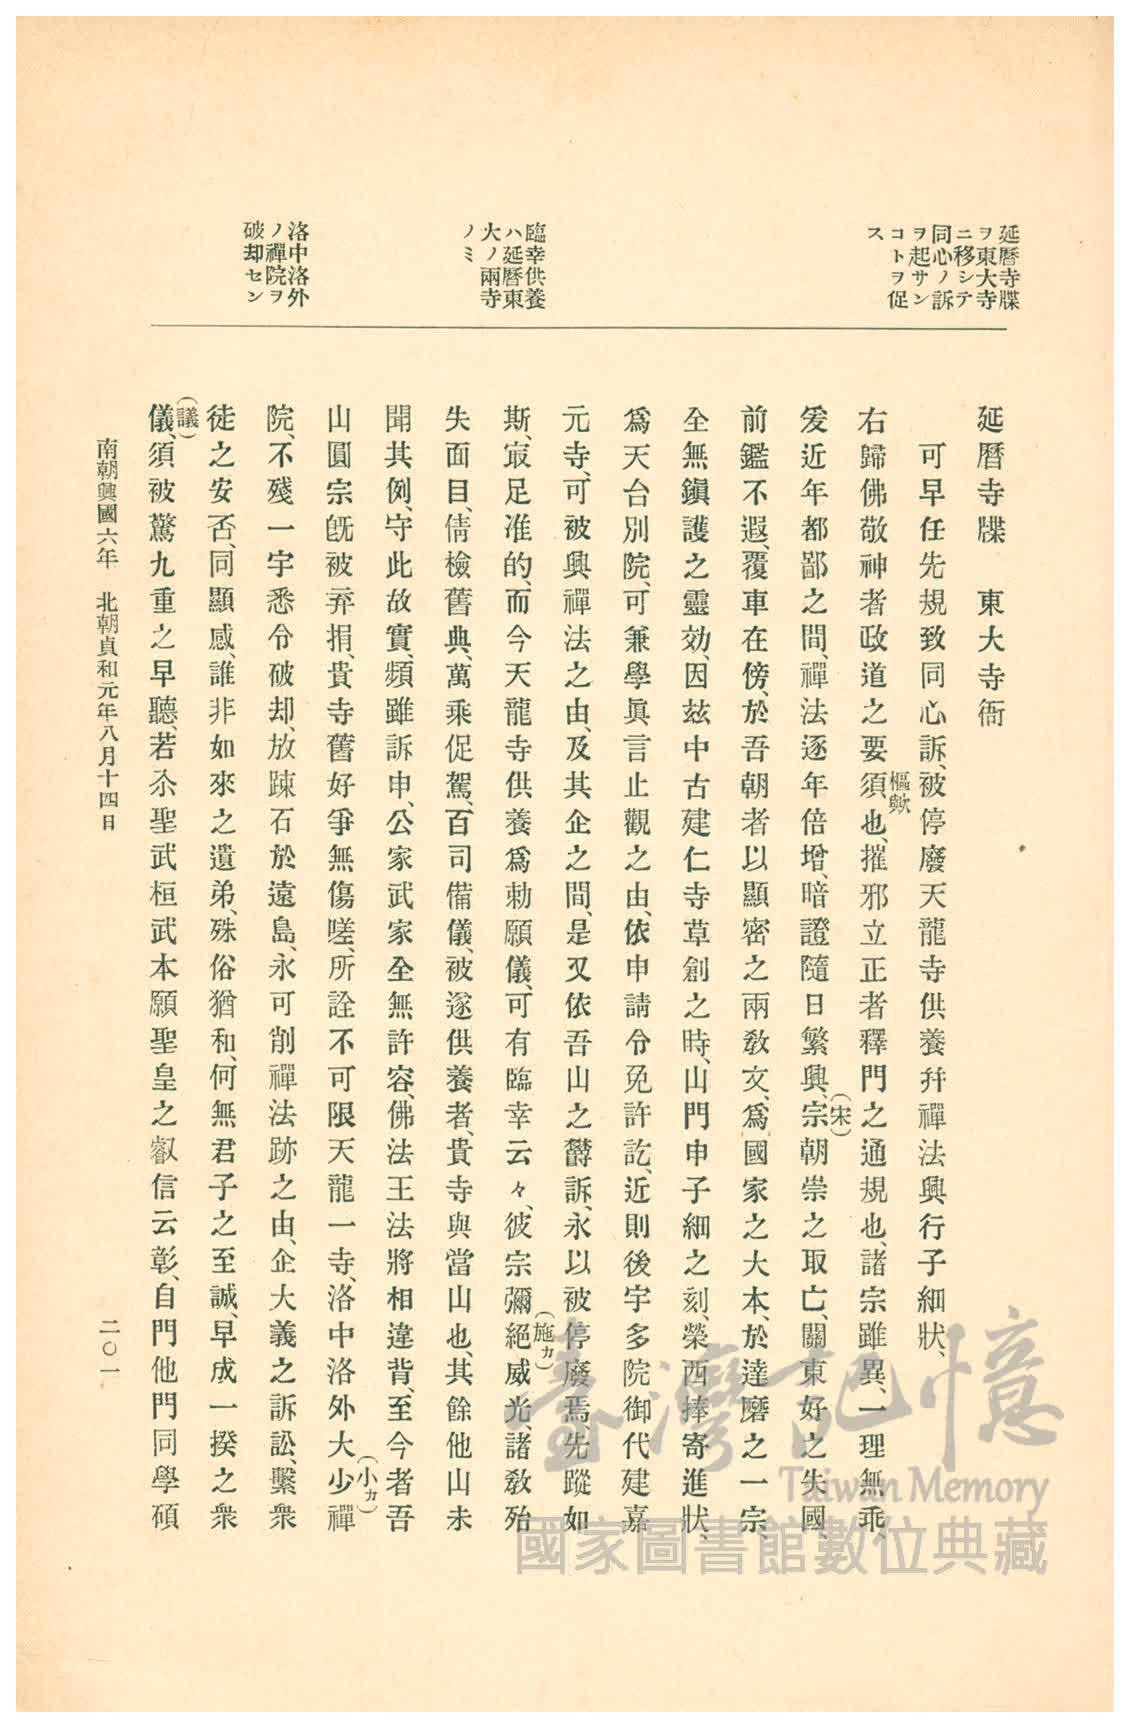 延曆寺牒
ヲ東大寺
ニ移シテ
同心ノ訴
ヲ起サン
コトヲ促
ス
臨幸供養
ハ延曆東
大ノ兩寺
ノミ
洛中洛外
ノ禪院ヲ
破却セン
延曆寺牒　東大寺衙
可早任先規致同心訴、被停廢天龍寺供養幷禪法興行子細狀、
右歸佛敬神者政道之要須也、摧邪立正者釋門之通規也、諸宗雖異、一理無乖、
樞歟
爰近年都鄙之間、禪法逐年倍增、暗證隨日繁興、宗朝崇之取亡、關東好之失國、
(宋)
前鑑不遐、覆車在傍、於吾朝者以顯密之兩敎文、爲國家之大本、於達磨之一宗、
全無鎭護之靈効、因玆中古建仁寺草創之時、山門申子細之刻、榮西捧寄進狀、
爲天台別院、可兼學眞言止觀之由、依申請令免許訖、近則後宇多院御代建嘉
元寺、可被興禪法之由、及其企之間、是又依吾山之欝訴、永以被停廢焉、先蹤如
斯、㝡足准的、而今天龍寺供養爲勅願儀、可有臨幸云々、彼宗彌絕威光、諸敎殆
(施カ)
失面目、倩檢舊典、萬乘促駕、百司備儀、被遂供養者、貴寺與當山也、其餘他山未
聞其例、守此故實、頻雖訴申、公家武家全無許容、佛法王法將相違背、至今者吾
山圓宗旣被弃捐、貴寺舊好爭無傷嗟、所詮不可限天龍一寺、洛中洛外大少禪
(小カ)
院、不殘一宇悉令破却、放踈石於遠島、永可削禪法跡之由、企大義之訴訟、繫衆
徒之安否、同顯感、誰非如來之遺弟、殊俗猶和、何無君子之至誠、早成一揆之衆
儀、須被驚九重之早聽、若尒聖武桓武本願聖皇之叡信云彰、自門他門同學碩
(議)
南朝興國六年　北朝貞和元年八月十四日
二〇一
臺灣記憶
Taiwan Memory
國家圖書館數位典藏